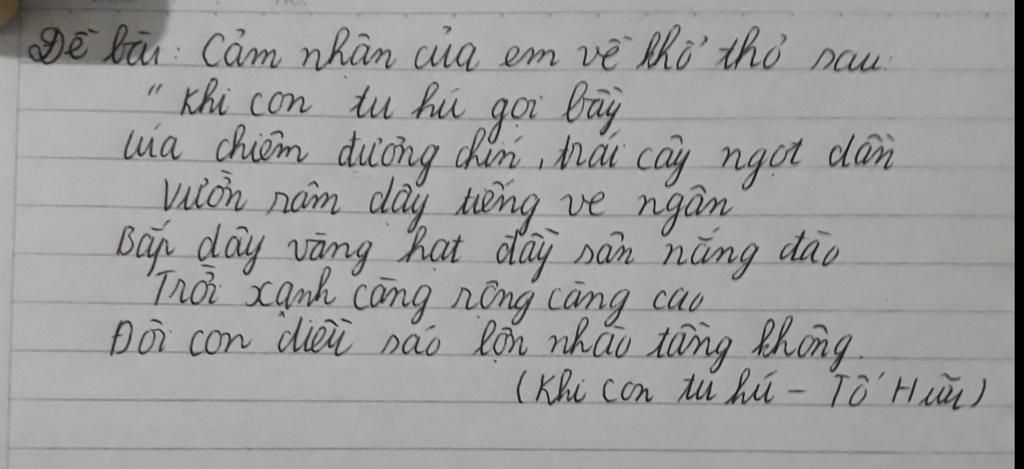 Đề bài: Cảm nhận của em về khổ thơ sau:
"Khi con tu hú gọi bầy
Lúa chiêm đương chín, trái cây ngọt dần
Vườn râm dậy tiếng ve ngân
Bắp dây vàng hạt đầy sân nắng đào
Trời xanh càng rộng càng cao
Đôi con diều sáo lộn nhào tầng không.
(Khi con tu hú - Tố Hữu)